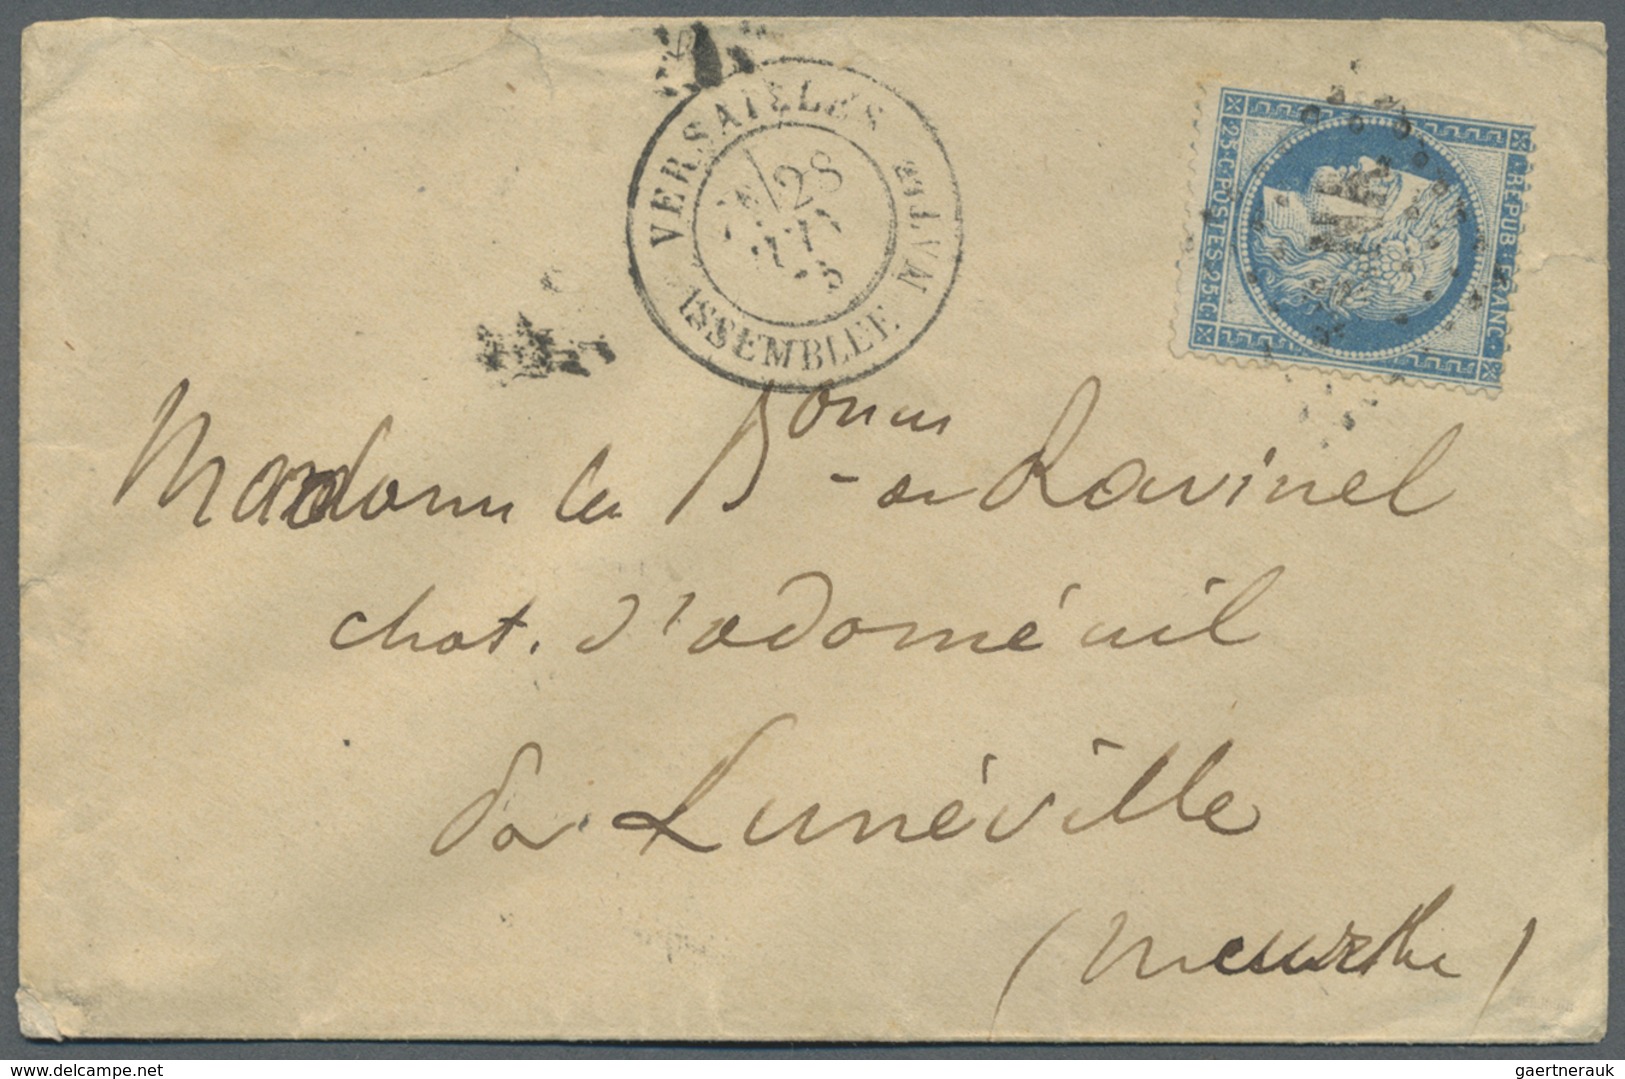 VERSAILLES
ASSEMBLEE NATLE
28
25.C.POSTES.25.C.
REPUB.FRANC.
Madame la Bonne de Ravinel
chat. d'adoménil
par Lunéville
(Meurthe)
www.delcampe.net
gaertnerauk